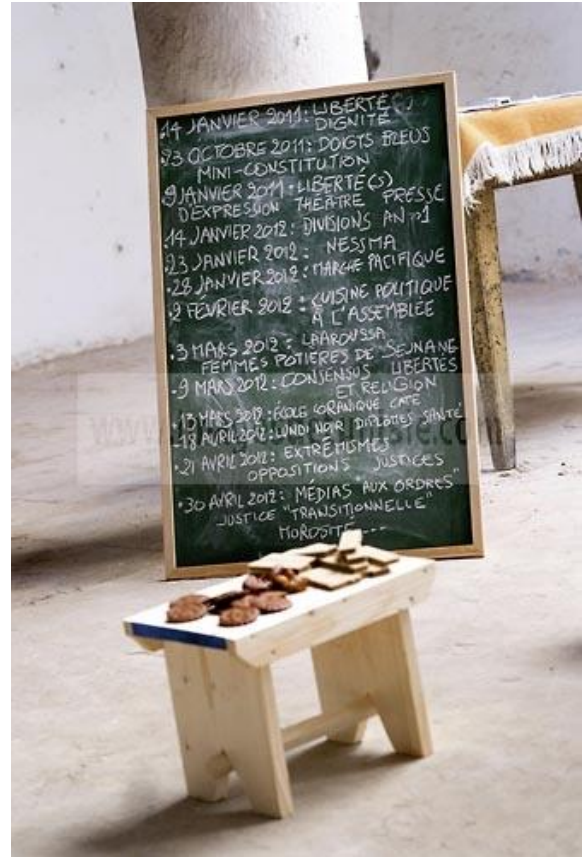 14 JANVIER 2011: LIBERTÉ(S)
DIGNITÉ
•23 OCTOBRE 2011: DOIGTS BLEUS
MINI-CONSTITUTION
9 JANVIER 2011: LIBERTÉ(S)
D'EXPRESSION THÉÂTRE PRESSE
•14 JANVIER 2012: DIVISIONS AN 1
•23 JANVIER 2012: NESSMA
•28 JANVIER 2012: MARCHE PACIFIQUE
•2 FÉVRIER 2012: CUISINE POLITIQUE
À L'ASSEMBLÉE
•3 MARS 2012: LAAROUSSA
FEMMES POTIÈRES DE SEJNANE
•9 MARS 2012: CONSENSUS LIBERTÉS
ET RELIGION
•13 MARS 2012: ÉCOLE CORANIQUE CAFÉ
•18 AVRIL 2012: LUNDI NOIR DIPLÔMES SANTÉ
•21 AVRIL 2012: EXTRÉMISMES
OPPOSITIONS JUSTICES
•30 AVRIL 2012: MÉDIAS "AUX ORDRES"
JUSTICE "TRANSITIONNELLE"
MOROSITÉ...